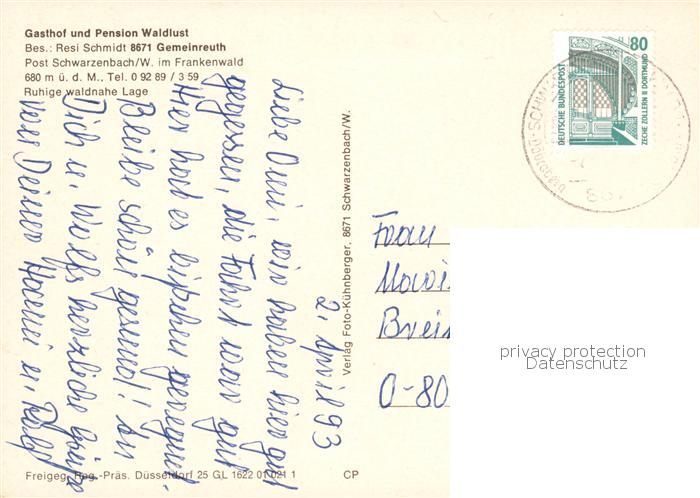 Gasthof und Pension Waldlust
Bes.: Resi Schmidt 8671 Gemeinreuth
Post Schwarzenbach/W. im Frankenwald
680 m ü. d. M., Tel. 0 92 89 / 3 59
Ruhige waldnahe Lage
2. April 93
Liebe Omi, wir haben hier gut
gegessen, die Fahrt war gut
Hier hat es bißchen geregnet.
Bleibe schön gesund! An
Dich u. Wolfs herzliche Grüße
von Deiner Hanni u. Ralf
Freigeg. Reg.-Präs. Düsseldorf 25 GL 1622 01 021 1
CP
Verlag Foto-Kühnberger, 8671 Schwarzenbach/W.
80
DEUTSCHE BUNDESPOST
ZECHE ZOLLERN II DORTMUND
Frau
O-80
privacy protection
Datenschutz